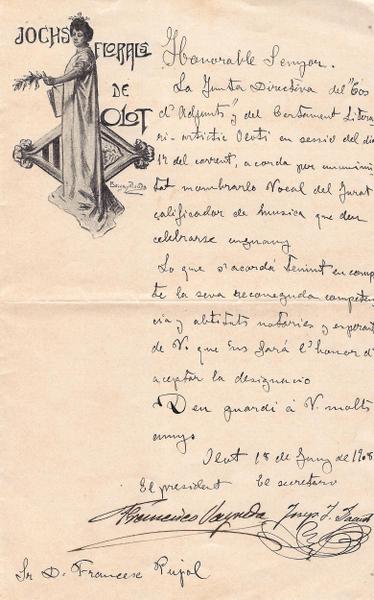 JOCHS
FLORALS
DE
OLOT
Honorable Senyor.
La Junta Directiva del "Cos
d'Adjunts" y del Certament Litera
ri-artistic Olotí en sessió del dia
del corrent, acordá per unanimi
tat nombrarlo Vocal del Jurat
calificador de musica que deu
celebrarse enguany
Lo que s'acordá tenint en comp
te la seva reconeguda competen
cia y abtituts notories y esperant
de V. que ens fará l'honor d'
aceptar la designació
Deu guardi á V. molts
anys
Olot 18 de Juny de 1908
El president El secretari
Francisco Vayreda Josep J.
Sr D. Francesc Pujol